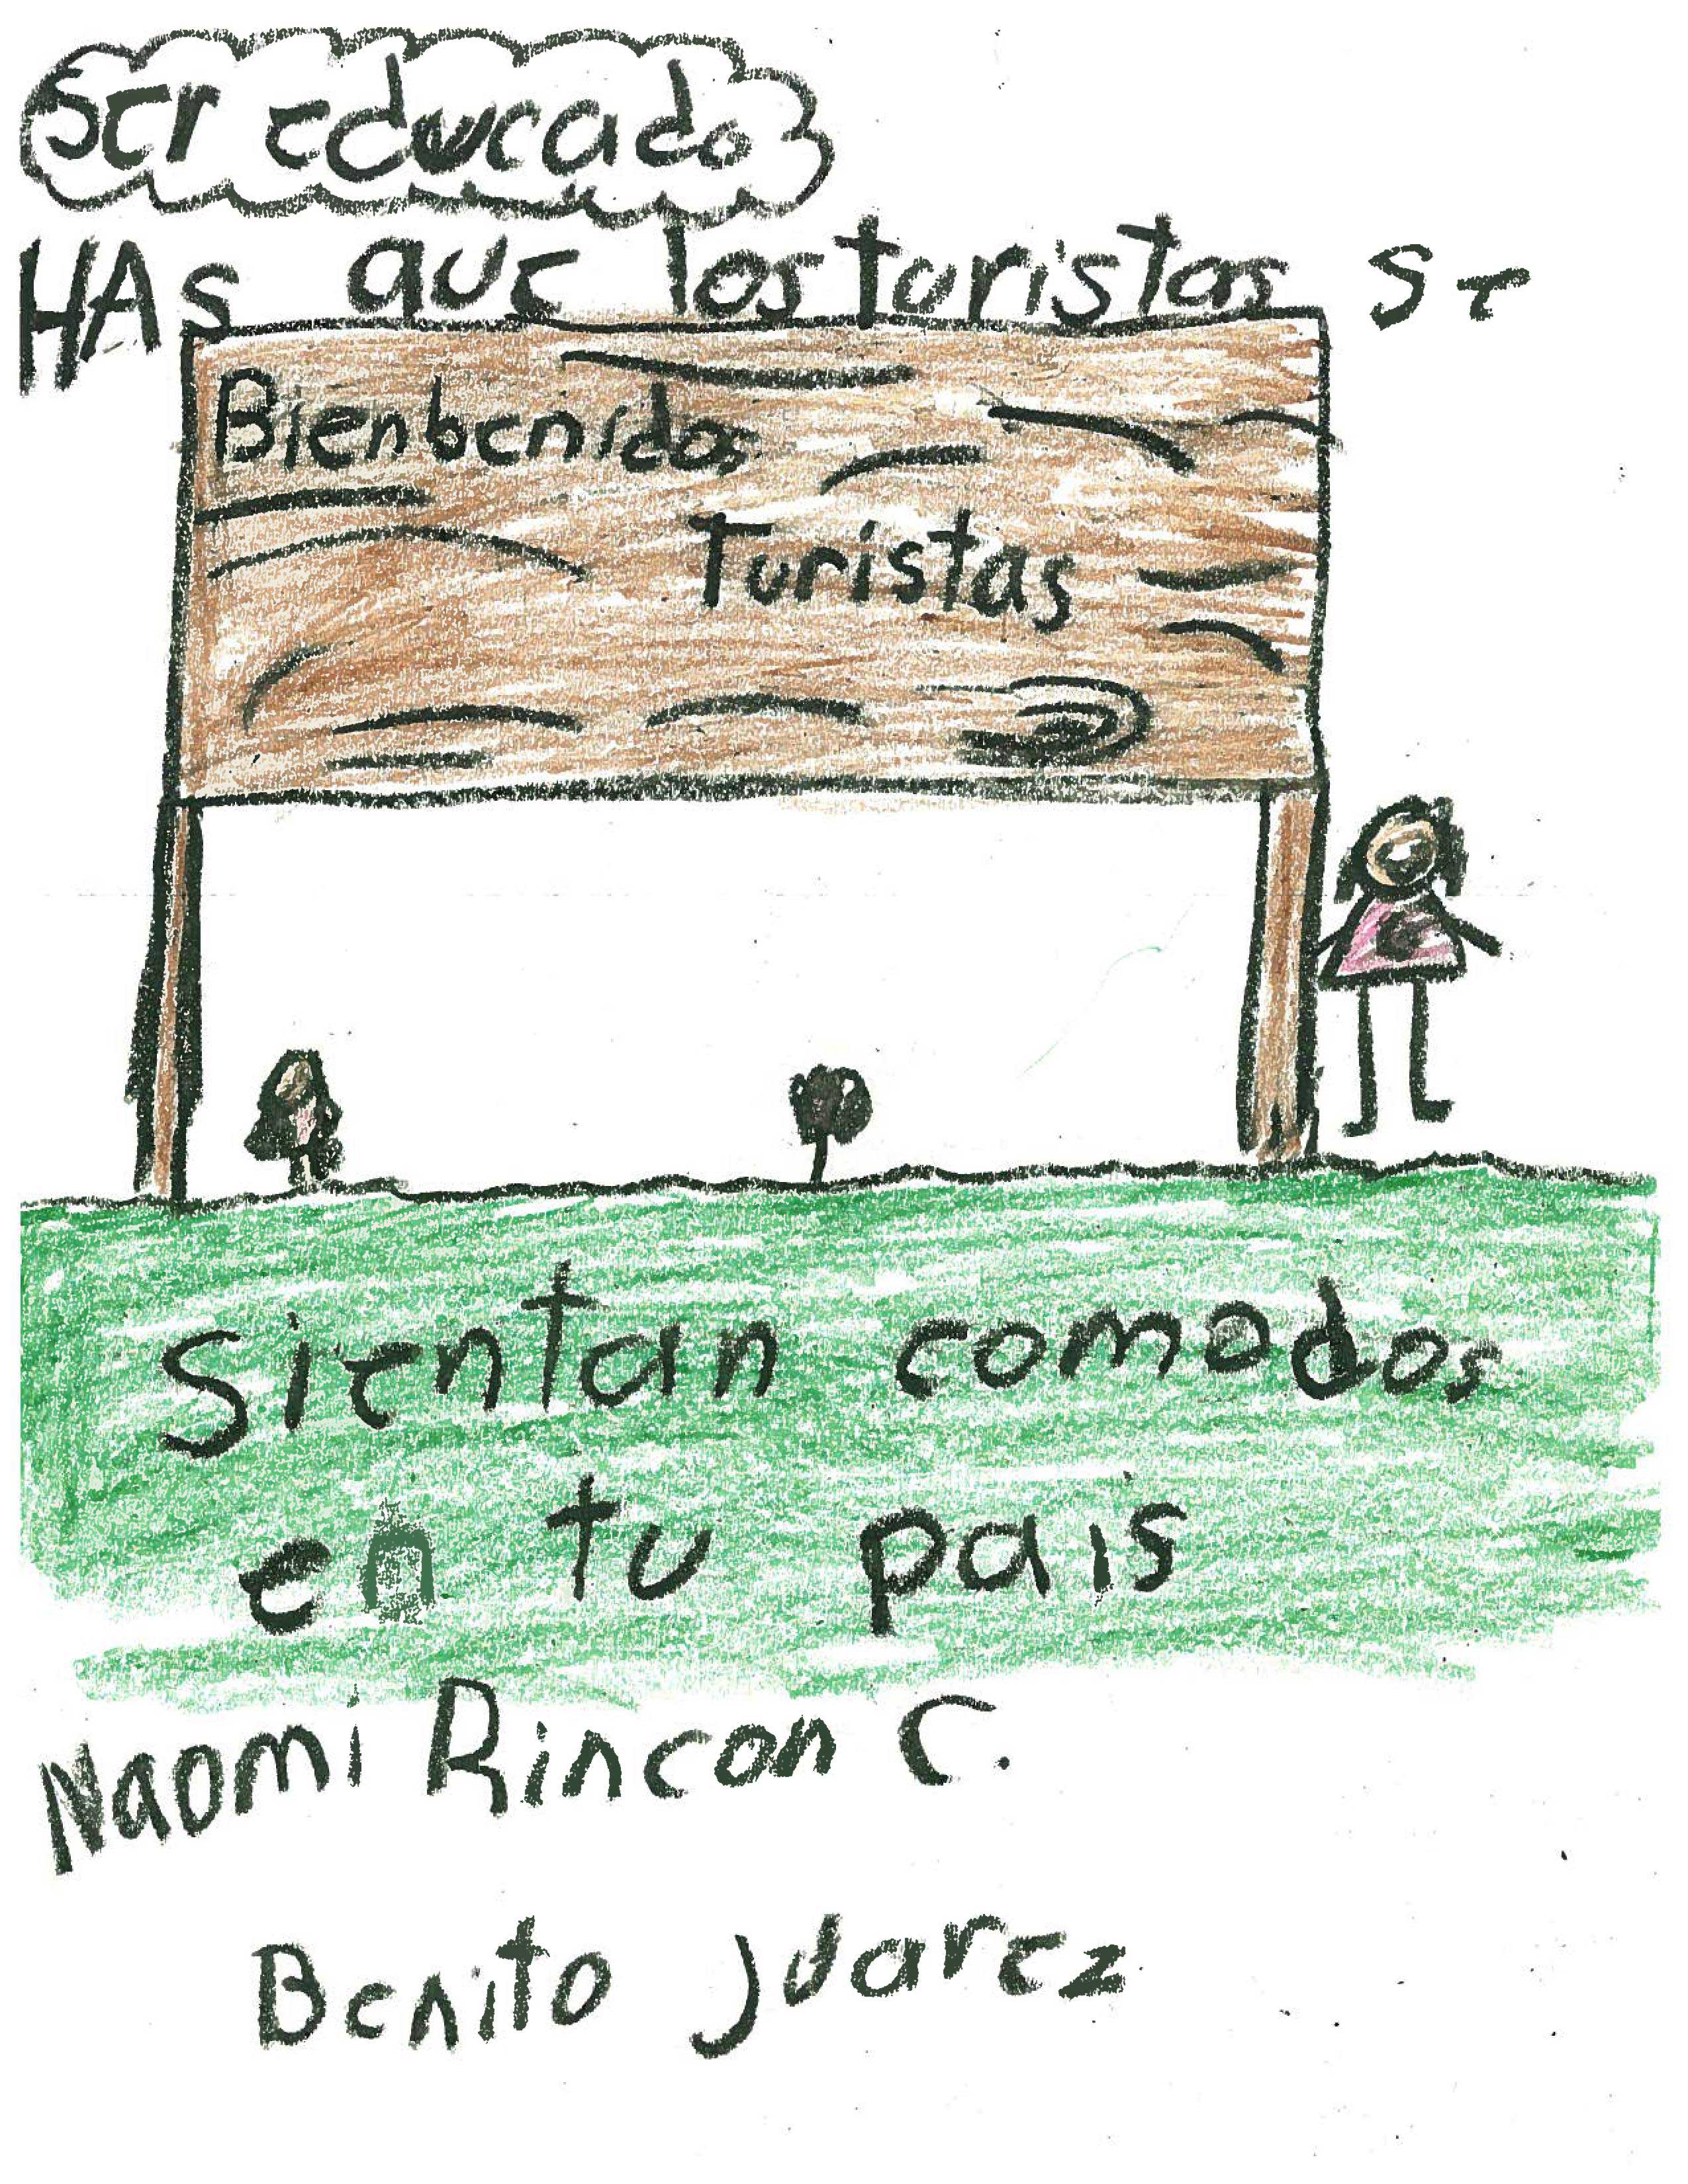 Ser educado
HAs que los turistas se
Bienbenidos
Turistas
sientan comodos
en tu pais
Naomi Rincon C.
Benito juarez